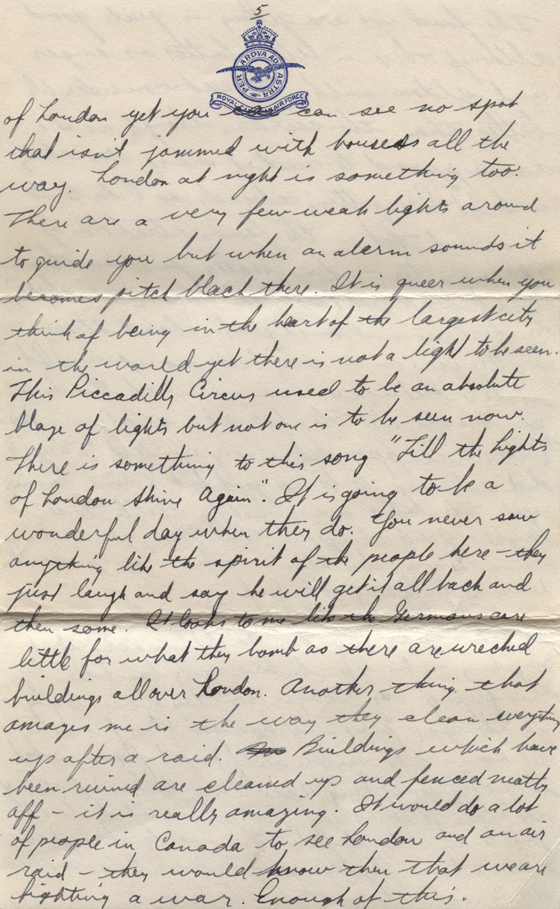 5
PER ARDVA AD ASTRA
ROYAL CANADIAN AIR FORCE
of London yet you can see no spot
that isn't jammed with houses all the
way. London at night is something too.
There are a very few weak lights around
to guide you but when an alarm sounds it
becomes pitch black there. It is queer when you
think of being in the heart of the largest city
in the world yet there is not a light to be seen.
This Piccadilly Circus used to be an absolute
blaze of lights but not one is to be seen now.
There is something to this song "Till the Lights
of London Shine Again". It is going to be a
wonderful day when they do. You never saw
anything like the spirit of the people here - they
just laugh and say he will get it all back and
then some. It looks to me like the Germans care
little for what they bomb as there are wrecked
buildings all over London. Another thing that
amazes me is the way they clean everything
up after a raid. Buildings which have
been ruined are cleaned up and fenced neatly
off - it is really amazing. It would do a lot
of people in Canada to see London and an air
raid - they would know then that we are
fighting a war. Enough of this.